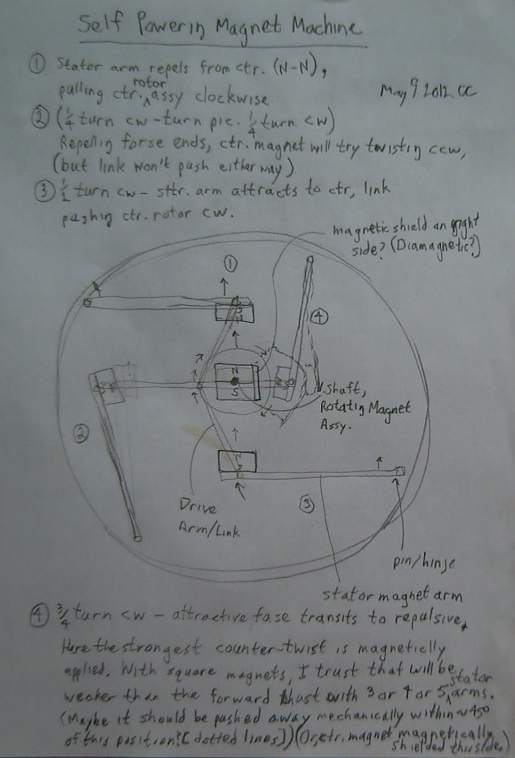 Self Powerin Magnet Machine
① Stator arm repels from ctr. (N-N),
pulling ctr. rotor assy clockwise
May 9 2012 CC
② (1/4 turn cw-turn pic. 1/4 turn cw)
Repelling forse ends, ctr. magnet will try twisting ccw,
(but link won't push either way)
③ 1/2 turn cw- sttr. arm attracts to ctr, link
pushing ctr. rotor cw.
magnetic shield on right
side? (Diamagnetic?)
①
④
N
S
Shaft,
Rotatin Magnet
Assy.
②
Drive
Arm/Link
③
pin/hinje
stator magnet arm
④ 3/4 turn cw - attractive fase transits to repulsive,
Here the strongest counter-twist is magneticlly
applied. With square magnets, I trust that will be
weeker than the forward thust with 3 or 4 or 5 stator arms.
(Maybe it should be pushed away mechanically within ~45°
of this position? [dotted lines]) (Or, ctr. magnet magnetically
shielded this side)